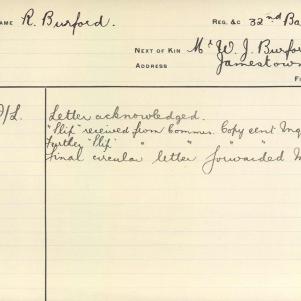 NAME R. Burford. REG. &c 32nd Ba
NEXT OF KIN Mr W. J. Burfo
ADDRESS Jamestown
F
/L. Letter acknowledged.
"Slip" received from Commun. Copy sent Inq
Further "Slip" " " " "
Final circular letter forwarded